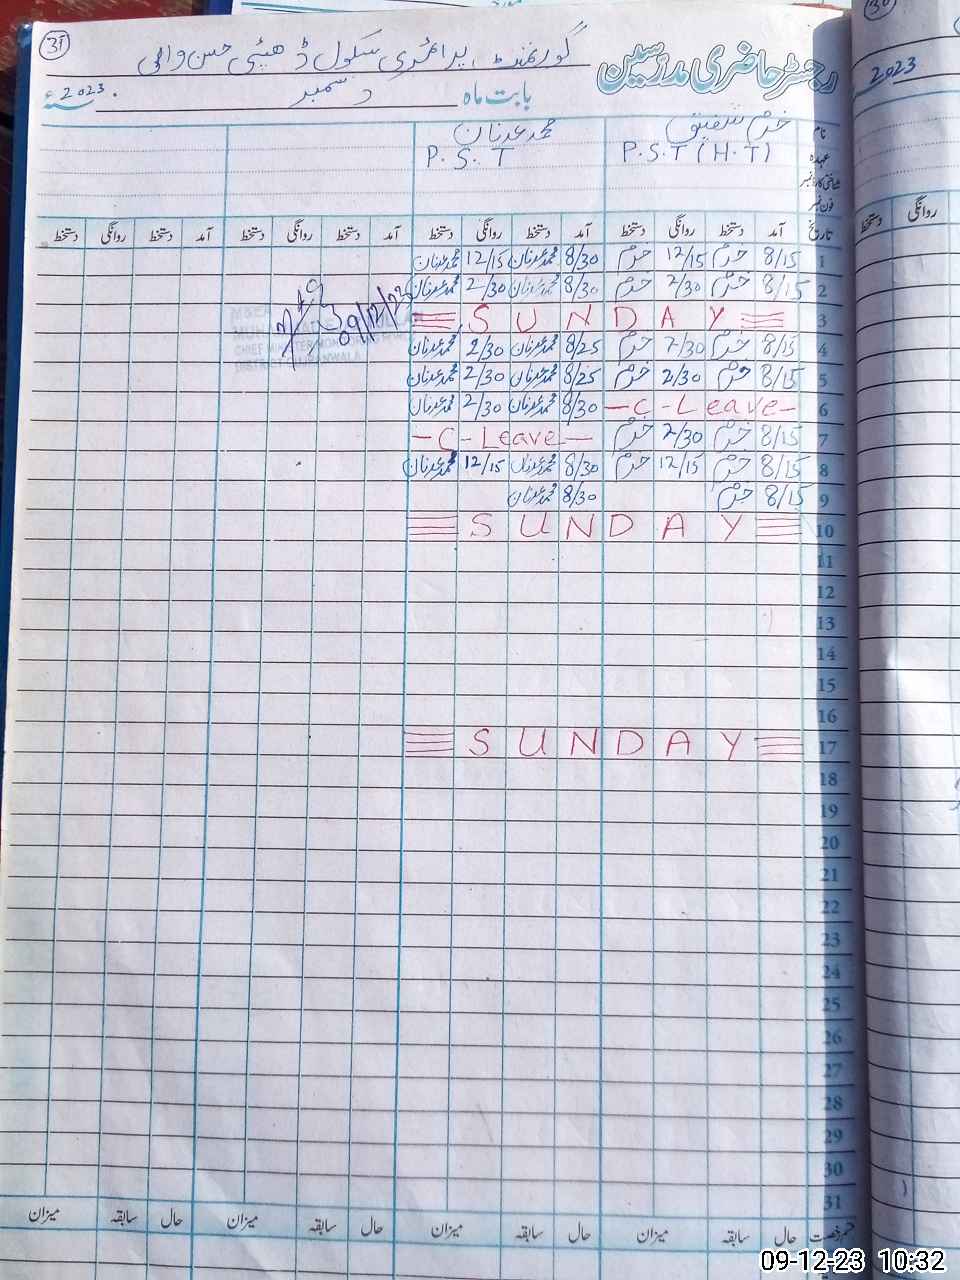 31
رجسٹر حاضری مدرسین گورنمنٹ پرائمری سکول
بابت ماہ دسمبر 2023ء
نام خرم شفیق محمد عدنان
عہدہ P.S.T (H.T) P.S.T
فون نمبر
تاریخ آمد دستخط روانگی دستخط آمد دستخط روانگی دستخط آمد دستخط روانگی دستخط آمد دستخط روانگی دستخط
1 8/15 خرم 12/15 خرم 8/30 محمد عدنان 12/15 محمد عدنان
2 8/15 خرم 2/30 خرم 8/30 محمد عدنان 2/30 محمد عدنان
3 SUNDAY
4 8/15 خرم 2/30 خرم 8/25 محمد عدنان 2/30 محمد عدنان
5 8/15 خرم 2/30 خرم 8/25 محمد عدنان 2/30 محمد عدنان
6 -C-Leave- 8/30 محمد عدنان 2/30 محمد عدنان
7 8/15 خرم 2/30 خرم -C-Leave-
8 8/15 خرم 12/15 خرم 8/30 محمد عدنان 12/15 محمد عدنان
9 8/15 خرم 8/30 محمد عدنان
10 SUNDAY
11
12
13
14
15
16
17 SUNDAY
18
19
20
21
22
23
24
25
26
27
28
29
30
31
حال سابقہ میزان حال سابقہ میزان حال سابقہ میزان حال سابقہ میزان
09/12/23
M&EA
CHIEF MINISTER
DISTRICT
30
2023
روانگی دستخط
09-12-23 10:32